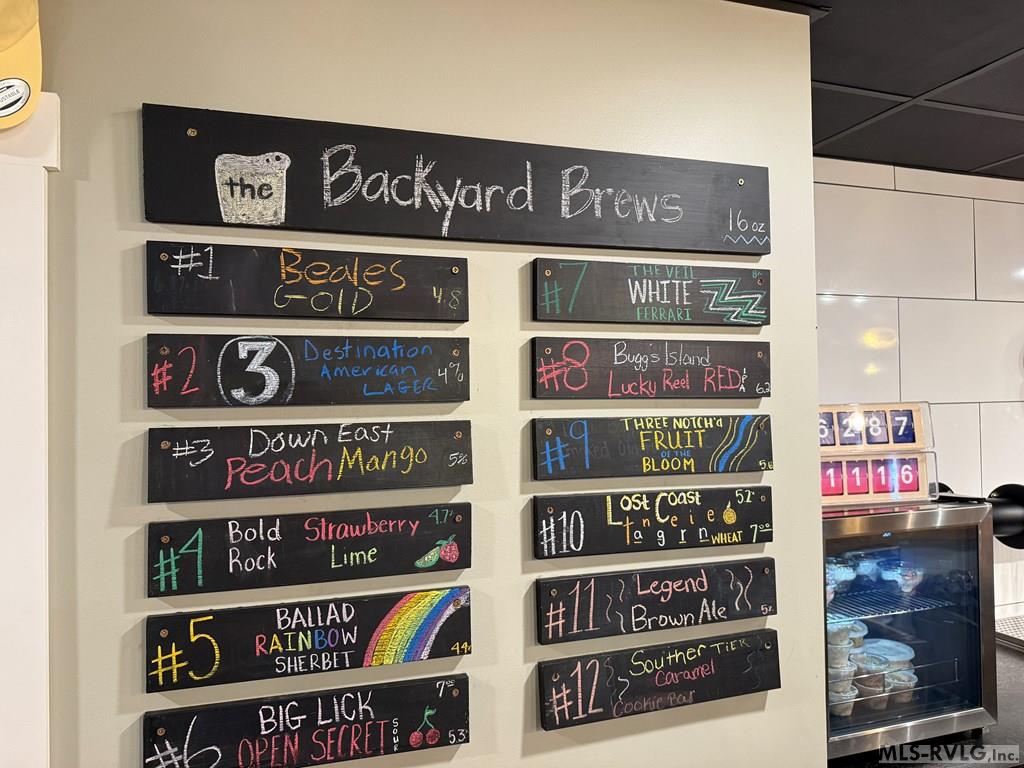 the Backyard Brews
16 oz
#1 Beales
GOLD 4.8
#2 3 Destination
American
LAGER 4%
#3 Down East
Peach Mango 5%
#4 Bold Rock Strawberry
Lime 4.7%
#5 BALLAD
RAINBOW
SHERBET 4.4
#6 BIG LICK 7°°
OPEN SECRET SOUR 5.3
#7 THE VEIL
WHITE
FERRARI 8%
#8 Bugg's Island
Lucky Reel RED IPA 6.2
#9 THREE NOTCH'd
FRUIT
OF THE
BLOOM
#10 Lost Coast 5.2%
Tangerine
WHEAT 7°°
#11 Legend
Brown Ale 5%
#12 Souther TIER
Caramel
Cookie Bar
6 2 8 7
1 1 1 6
MLS-RVLG, Inc.